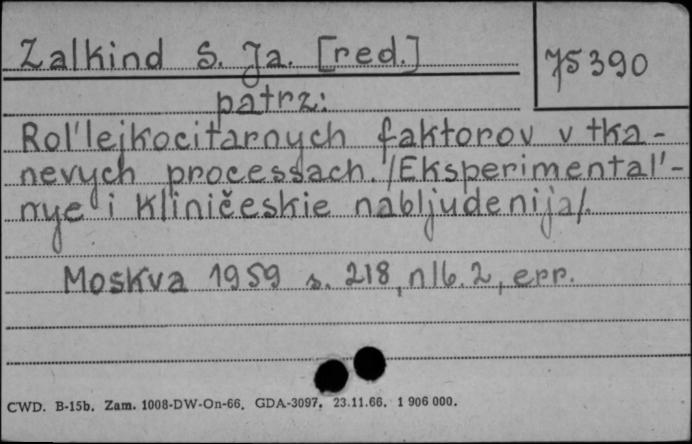 Zalkind S. Ja. [red.]
75390
patrz:
Rol' lejkocitarnych faktorov v tka-
nevych processach. /Eksperimental'-
nye i kliničeskie nabljudenija/.
Moskva 1959 s. 218, nlb. 2, err.
CWD. B-15b. Zam. 1008-DW-On-66. GDA-3097. 23.11.66. 1 906 000.